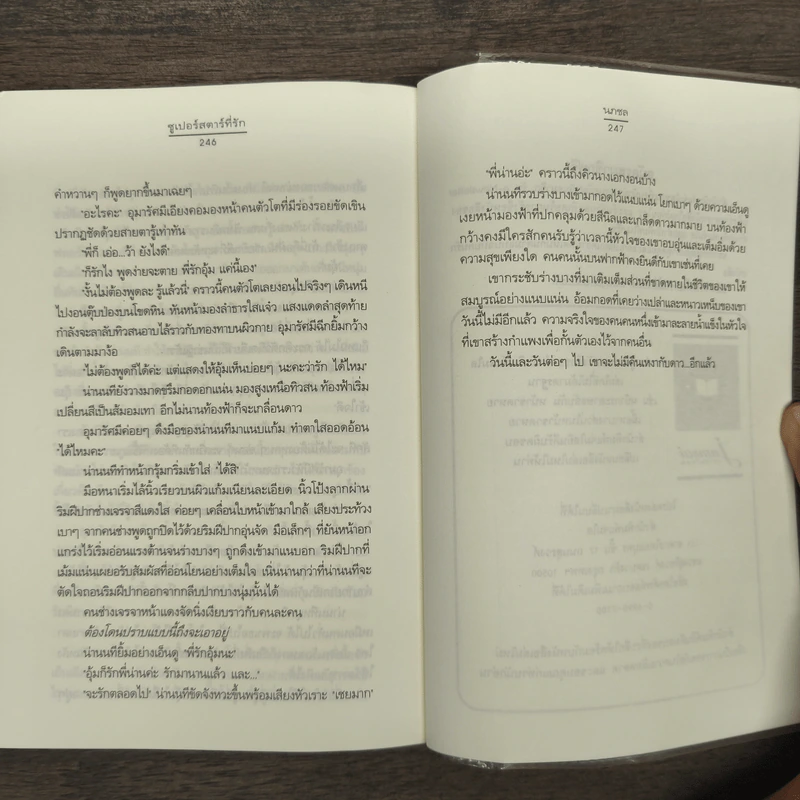 ซูเปอร์สตาร์ที่รัก
246
คำหวานๆ ก็พูดยากขึ้นมาเฉยๆ
"อะไรคะ" อุมารัศมีเอียงคอมองหน้าคนตัวโตที่มีร่องรอยขัดเขิน
ปรากฏชัดด้วยสายตารู้เท่าทัน
"พี่ก็ เอ่อ...ว้า ยังไงดี"
"ก็รักไง พูดง่ายจะตาย พี่รักอุ้ม แค่นี้เอง"
"งั้นไม่ต้องพูดละ รู้แล้วนี่" คราวนี้คนตัวโตเลยงอนไปจริงๆ เดินหนี
ไปงอนตุ๊บป่องบนโขดหิน หันหน้ามองลำธารใสแจ๋ว แสงแดดลำสุดท้าย
กำลังจะลาลับทิวสนอาบไล้ราวกับทองทาบนผิวกาย อุมารัศมีฉีกยิ้มกว้าง
เดินตามมาง้อ
"ไม่ต้องพูดก็ได้ค่ะ แต่แสดงให้อุ้มเห็นบ่อยๆ นะคะว่ารัก ได้ไหม"
น่านนทียังวางมาดขรึมกอดอกแน่น มองสูงเหนือทิวสน ท้องฟ้าเริ่ม
เปลี่ยนสีเป็นส้มอมเทา อีกไม่นานท้องฟ้าก็จะเกลื่อนดาว
อุมารัศมีค่อยๆ ดึงมือของน่านนทีมาแนบแก้ม ทำตาใสออดอ้อน
"ได้ไหมคะ"
น่านนทีทำหน้ากรุ้มกริ่มเข้าใส่ "ได้สิ"
มือหนาเริ่มไล้นิ้วเรียวบนผิวแก้มเนียนละเอียด นิ้วโป้งลากผ่าน
ริมฝีปากช่างเจรจาสีแดงใส ค่อยๆ เคลื่อนใบหน้าเข้ามาใกล้ เสียงประท้วง
เบาๆ จากคนช่างพูดถูกปิดไว้ด้วยริมฝีปากอุ่นจัด มือเล็กๆ ที่ยันหน้าอก
แกร่งไว้เริ่มอ่อนแรงต้านจนร่างบางๆ ถูกดึงเข้ามาแนบอก ริมฝีปากที่
เม้มแน่นเผยอรับสัมผัสที่อ่อนโยนอย่างเต็มใจ เนิ่นนานกว่าที่น่านนทีจะ
ตัดใจถอนริมฝีปากออกจากกลีบปากบางนุ่มนั้นได้
คนช่างเจรจาหน้าแดงจัดนิ่งเงียบราวกับคนละคน
ต้องโดนปราบแบบนี้ถึงจะเอาอยู่
น่านนทียิ้มอย่างเอ็นดู "พี่รักอุ้มนะ"
"อุ้มก็รักพี่น่านค่ะ รักมานานแล้ว และ..."
"จะรักตลอดไป" น่านนทีขัดจังหวะขึ้นพร้อมเสียงหัวเราะ "เชยมาก"
นภชล
247
"พี่น่านอ่ะ" คราวนี้ถึงคิวนางเอกงอนบ้าง
น่านนทีรวบร่างบางเข้ามากอดไว้แนบแน่น โยกเบาๆ ด้วยความเอ็นดู
เงยหน้ามองฟ้าที่ปกคลุมด้วยสีนิลและเกล็ดดาวมากมาย บนท้องฟ้า
กว้างคงมีใครสักคนรับรู้ว่าเวลานี้หัวใจของเขาอบอุ่นและเต็มอิ่มด้วย
ความสุขเพียงใด คนคนนั้นบนฟากฟ้าคงยินดีกับเขาเช่นที่เคย
เขากระชับร่างบางที่มาเติมเต็มส่วนที่ขาดหายในชีวิตของเขาให้
สมบูรณ์อย่างแนบแน่น อ้อมกอดที่เคยว่างเปล่าและหนาวเหน็บของเขา
วันนี้ไม่มีอีกแล้ว ความจริงใจของคนคนหนึ่งเข้ามาละลายน้ำแข็งในหัวใจ
ที่เขาสร้างกำแพงเพื่อกั้นตัวเองไว้จากคนอื่น
วันนี้และวันต่อๆ ไป เขาจะไม่มีคืนเหงากับดาว...อีกแล้ว